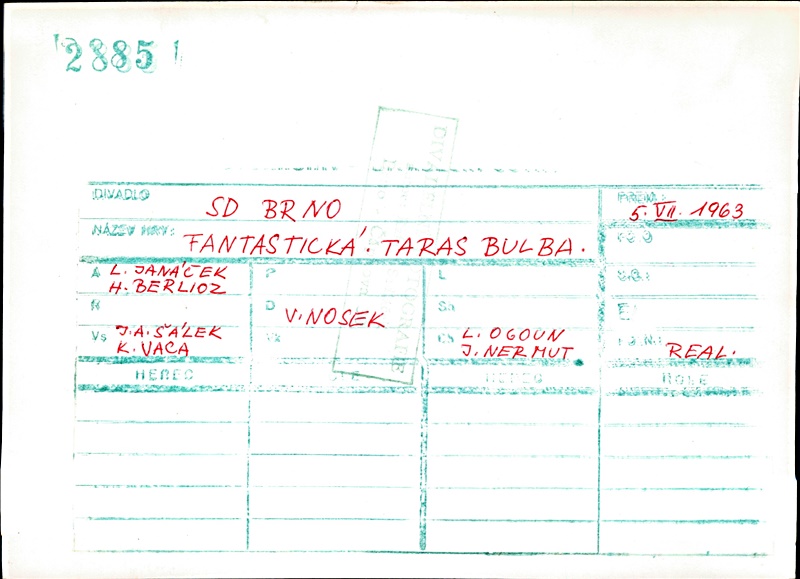 2885
DIVADLO SD BRNO PREM.: 5. VII. 1963
NÁZEV HRY: FANTASTICKÁ. TARAS BULBA.
A L. JANÁČEK P L
H. BERLIOZ
N D V. NOSEK
Vs J.A. ŠÁLEK Ch L. OGOUN
K. VACA J. NERMUT REAL.
HEREC HEREC ROLE